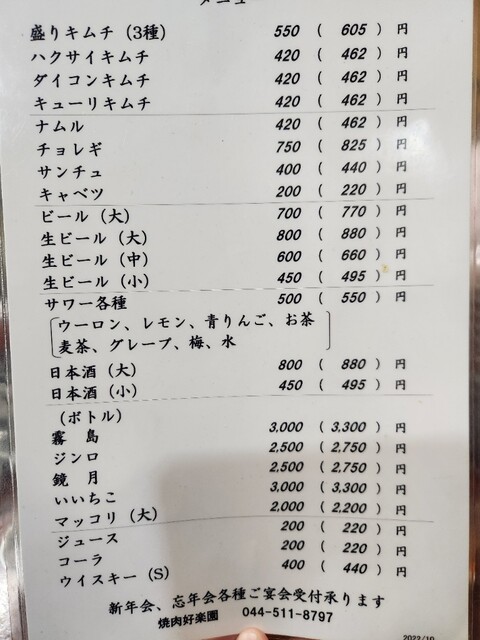 メニュー
盛りキムチ（3種） 550 ( 605 ) 円
ハクサイキムチ 420 ( 462 ) 円
ダイコンキムチ 420 ( 462 ) 円
キューリキムチ 420 ( 462 ) 円
ナムル 420 ( 462 ) 円
チョレギ 750 ( 825 ) 円
サンチュ 400 ( 440 ) 円
キャベツ 200 ( 220 ) 円
ビール（大） 700 ( 770 ) 円
生ビール（大） 800 ( 880 ) 円
生ビール（中） 600 ( 660 ) 円
生ビール（小） 450 ( 495 ) 円
サワー各種 500 ( 550 ) 円
ウーロン、レモン、青りんご、お茶
麦茶、グレープ、梅、水
日本酒（大） 800 ( 880 ) 円
日本酒（小） 450 ( 495 ) 円
（ボトル）
霧　島 3,000 ( 3,300 ) 円
ジンロ 2,500 ( 2,750 ) 円
鏡　月 2,500 ( 2,750 ) 円
いいちこ 3,000 ( 3,300 ) 円
マッコリ（大） 2,000 ( 2,200 ) 円
ジュース 200 ( 220 ) 円
コーラ 200 ( 220 ) 円
ウイスキー（S） 400 ( 440 ) 円
新年会、忘年会各種ご宴会受付承ります
焼肉好楽園　044-511-8797
2022/10